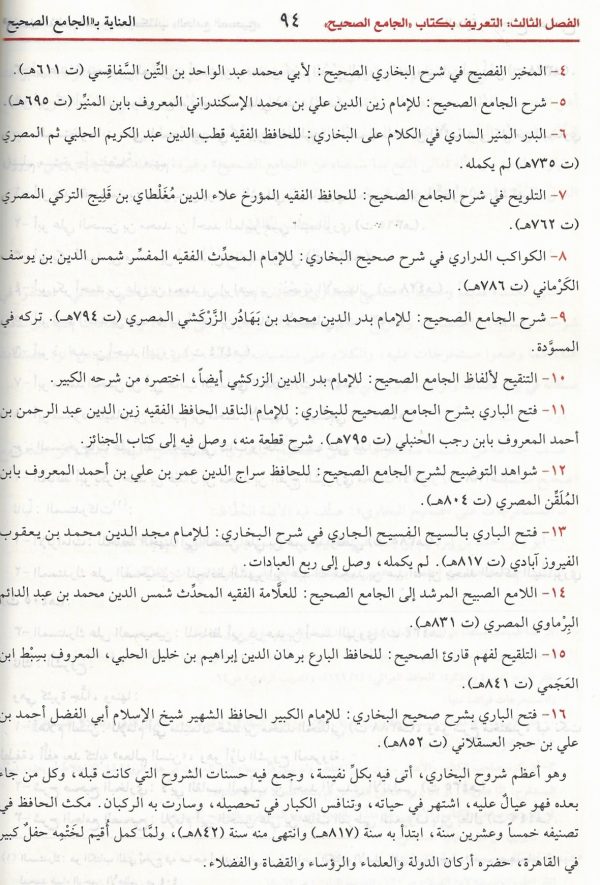 الفصل الثالث: التعريف بكتاب «الجامع الصحيح» ٩٤ العناية بـ«الجامع الصحيح
٤- المخبر الفصيح في شرح البخاري الصحيح: لأبي محمد عبد الواحد بن التِّين السَّفاقِسي (ت ٦١١هـ).
٥- شرح الجامع الصحيح: للإمام زين الدين علي بن محمد الإسكندراني المعروف بابن المنيِّر (ت ٦٩٥هـ).
٦- البدر المنير الساري في الكلام على البخاري: للحافظ الفقيه قطب الدين عبد الكريم الحلبي ثم المصري
(ت ٧٣٥هـ) لم يكمله.
٧- التلويح في شرح الجامع الصحيح: للحافظ الفقيه المؤرخ علاء الدين مُغَلْطاي بن قَلِيج التركي المصري
(ت ٧٦٢هـ).
٨- الكواكب الدراري في شرح صحيح البخاري: للإمام المحدِّث الفقيه المفسِّر شمس الدين بن يوسف
الكَرْماني (ت ٧٨٦هـ).
٩- شرح الجامع الصحيح: للإمام بدر الدين محمد بن بَهَادُر الزَّرْكَشي المصري (ت ٧٩٤هـ). تركه في
المسوَّدة.
١٠- التنقيح لألفاظ الجامع الصحيح: للإمام بدر الدين الزركشي أيضاً، اختصره من شرحه الكبير.
١١- فتح الباري بشرح الجامع الصحيح للبخاري: للإمام الناقد الحافظ الفقيه زين الدين عبد الرحمن بن
أحمد المعروف بابن رجب الحنبلي (ت ٧٩٥هـ). شرح قطعة منه، وصل فيه إلى كتاب الجنائز.
١٢- شواهد التوضيح لشرح الجامع الصحيح: للحافظ سراج الدين عمر بن علي بن أحمد المعروف بابن
المُلَقِّن المصري (ت ٨٠٤هـ).
١٣- فتح الباري بالسيح الفسيح الجاري في شرح البخاري: للإمام مجد الدين محمد بن يعقوب
الفيروز آبادي (ت ٨١٧هـ). لم يكمله، وصل إلى ربع العبادات.
١٤- اللامع الصبيح المرشد إلى الجامع الصحيح: للعلّامة الفقيه المحدِّث شمس الدين محمد بن عبد الدائم
البِرْماوي المصري (ت ٨٣١هـ).
١٥- التلقيح لفهم قارئ الصحيح: للحافظ البارع برهان الدين إبراهيم بن خليل الحلبي، المعروف بسِبْط ابن
العَجَمي (ت ٨٤١هـ).
١٦- فتح الباري بشرح صحيح البخاري: للإمام الكبير الحافظ الشهير شيخ الإسلام أبي الفضل أحمد بن
علي بن حجر العسقلاني (ت ٨٥٢هـ).
وهو أعظم شروح البخاري، أتى فيه بكلِّ نفيسة، وجمع فيه حسنات الشروح التي كانت قبله، وكل من جاء
بعده فهو عيالٌ عليه، اشتهر في حياته، وتنافس الكبار في تحصيله، وسارت به الركبان. مكث الحافظ في
تصنيفه خمساً وعشرين سنة، ابتدأ به سنة (٨١٧هـ) وانتهى منه سنة (٨٤٢هـ)، ولمّا كمل أُقيم لخَتْمِه حفلٌ كبير
في القاهرة، حضره أركان الدولة والعلماء والرؤساء والقضاة والفضلاء.